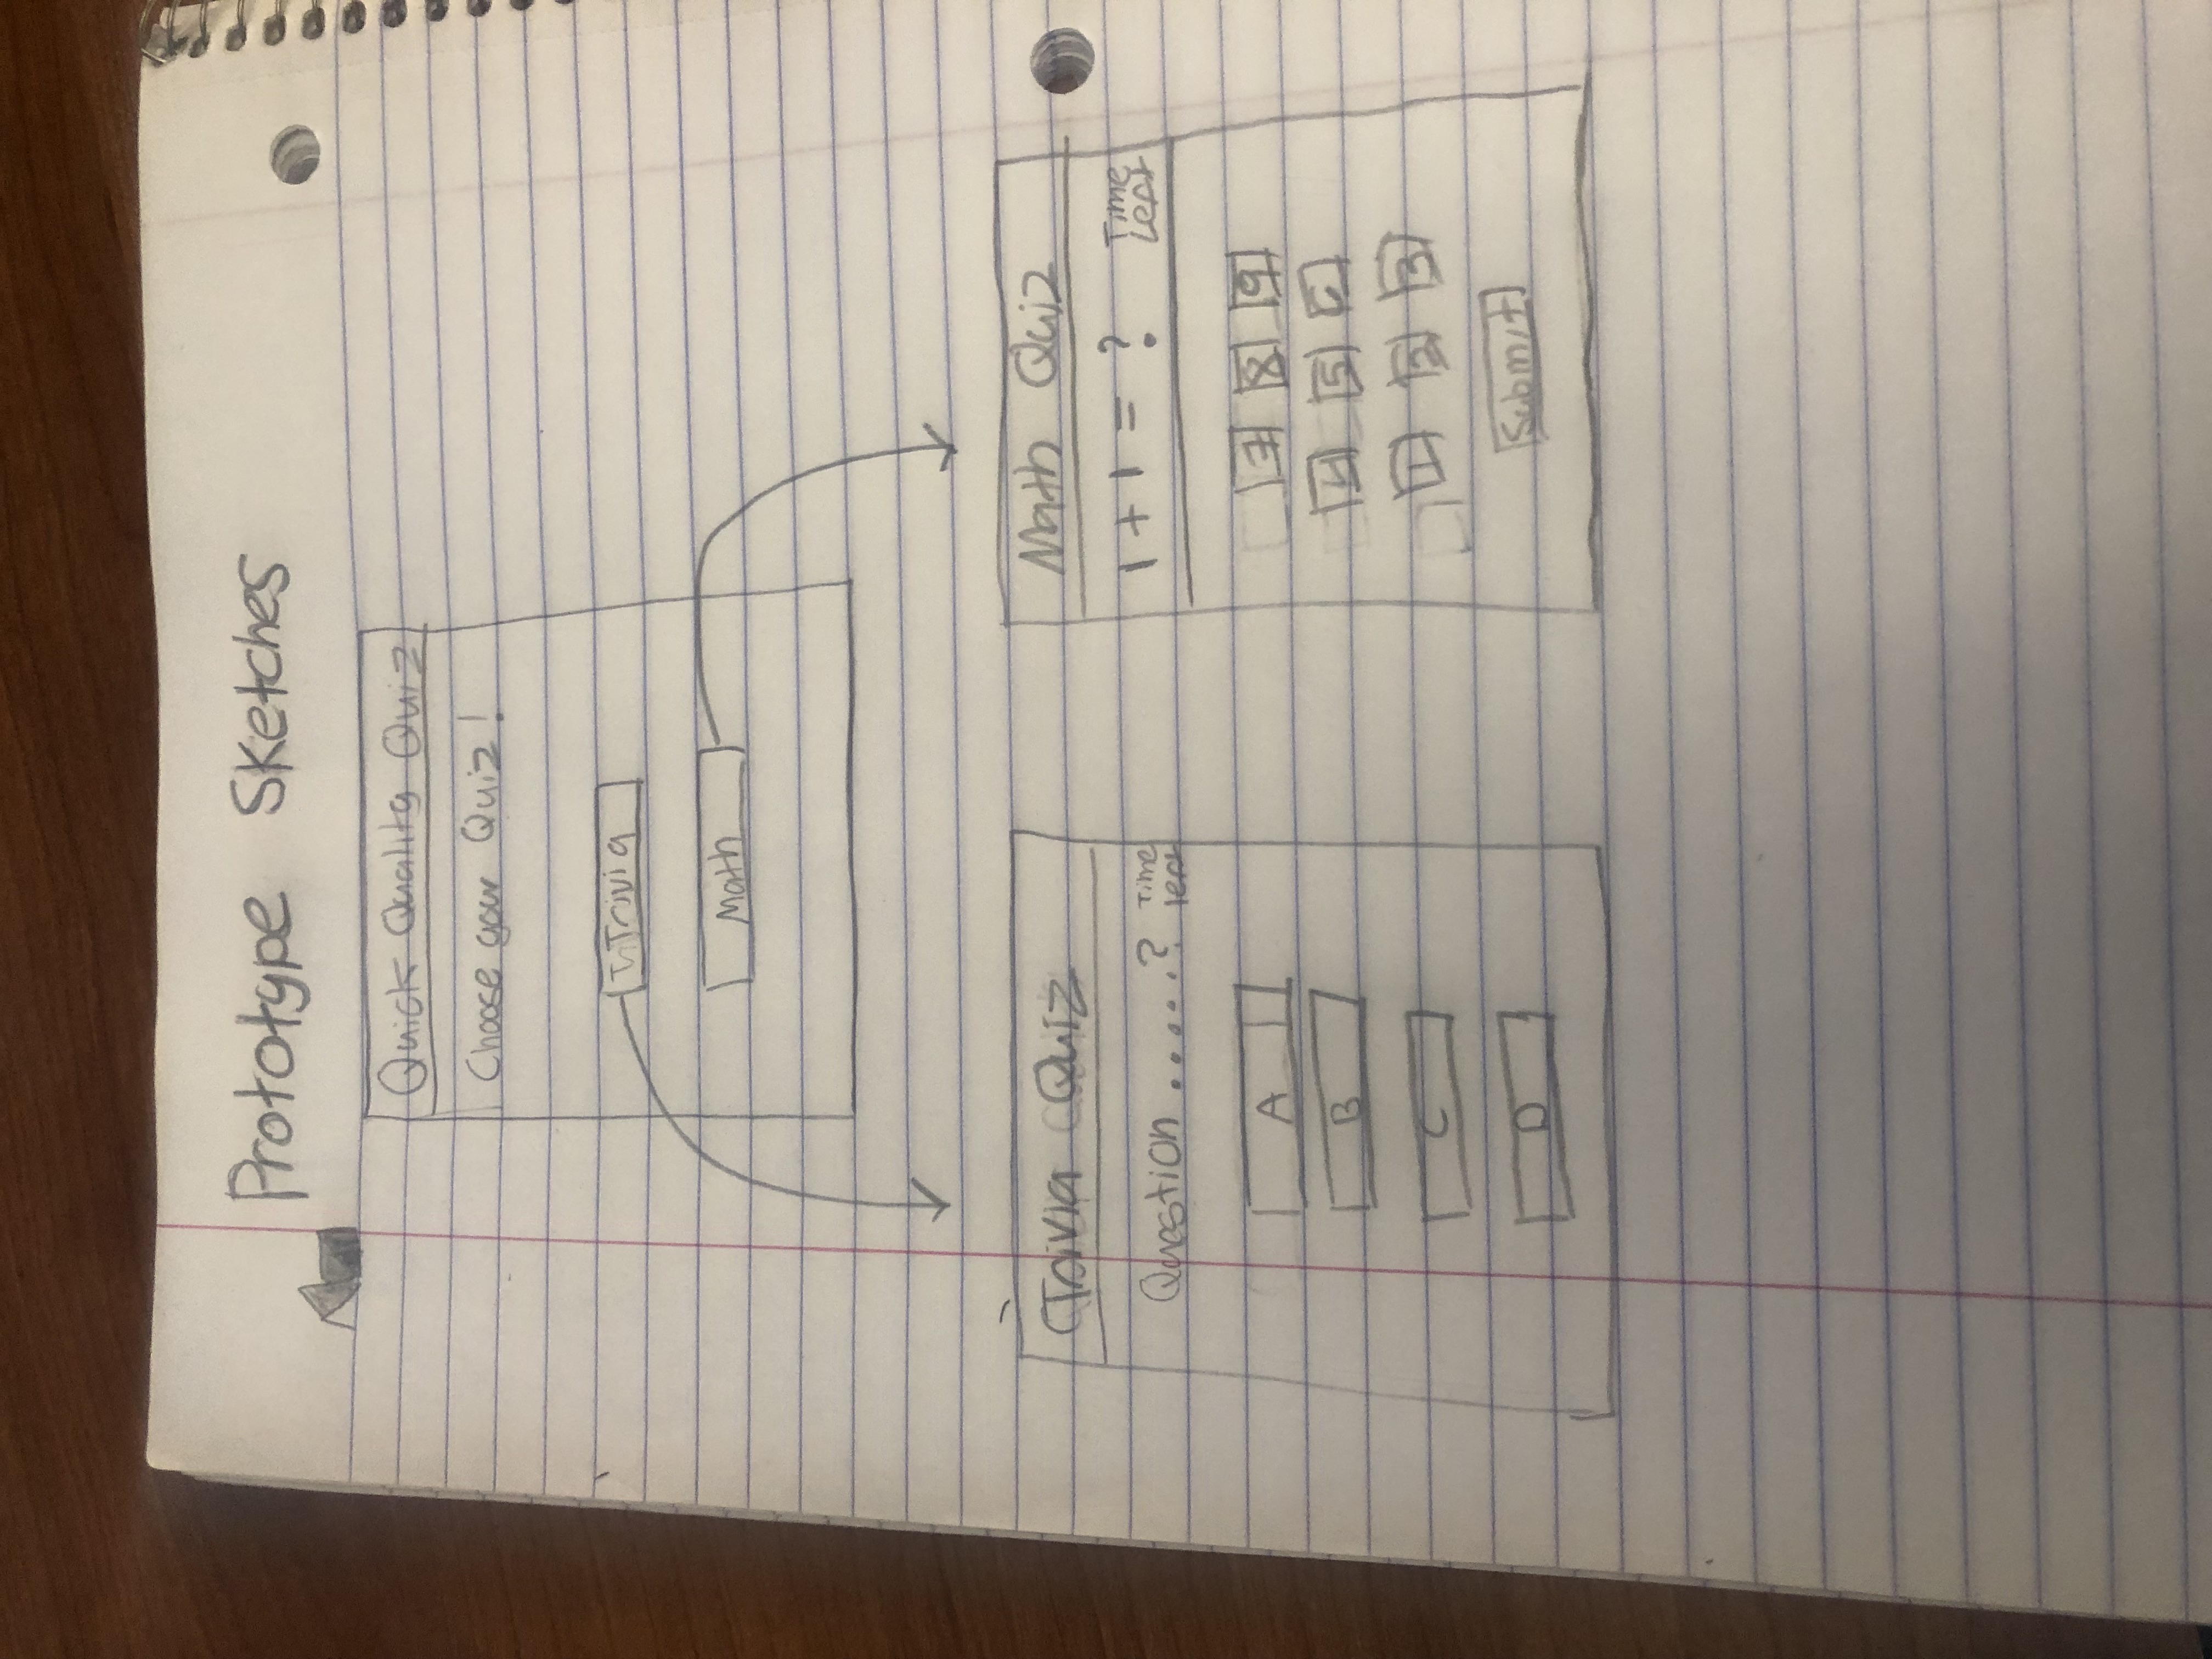 Prototype Sketches
Quick Quality Quiz
Choose your Quiz!
Trivia
Math
Trivia Quiz
Question .....? Time left
A
B
C
D
Math Quiz
1 + 1 = ? Time Left
7 8 9
4 5 6
1 2 3
Submit